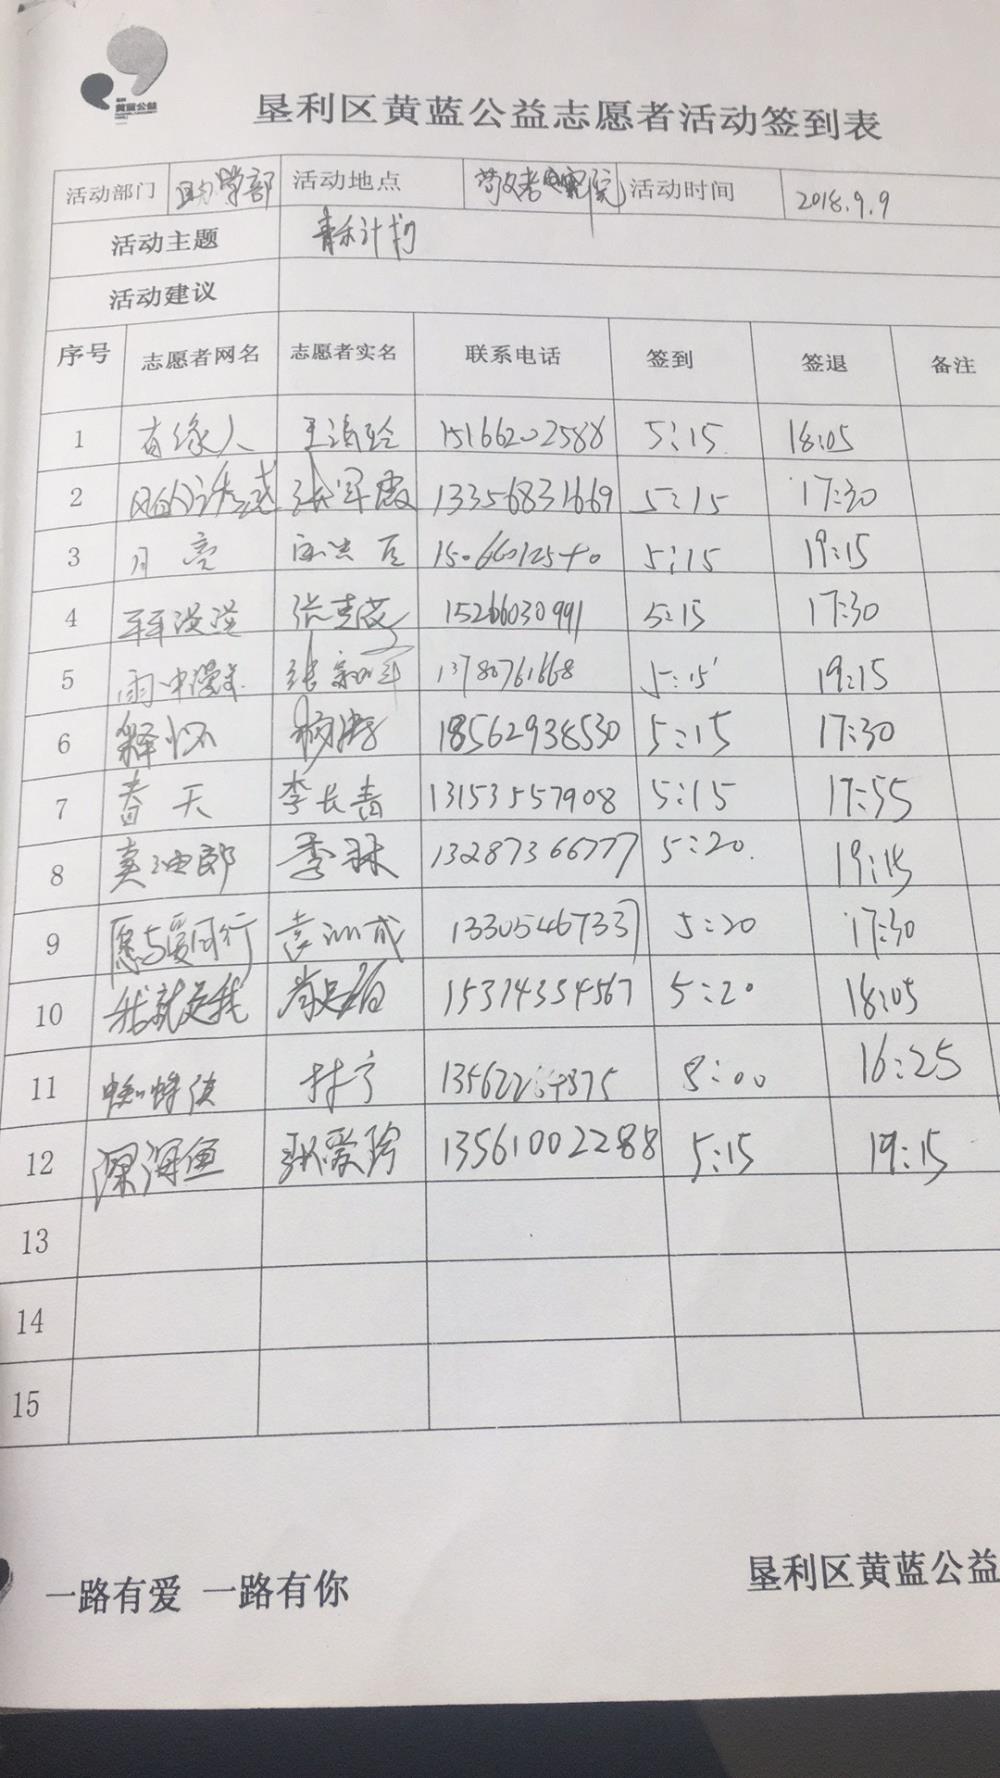 黄蓝公益
垦利区黄蓝公益志愿者活动签到表
活动部门 助学部 活动地点 活动时间 2018.9.9
活动主题 青禾计划
活动建议
序号 志愿者网名 志愿者实名 联系电话 签到 签退 备注
1 有缘人 15166202588 5:15 18:05
2 13356831669 5:15 17:30
3 月亮 5:15 19:15
4 15266030991 5:15 17:30
5 雨中漫步 张新军 13780761668 5:15 19:15
6 释怀 18562938530 5:15 17:30
7 春天 李长青 13153557908 5:15 17:55
8 卖油郎 李林 13287366777 5:20 19:15
9 愿与爱同行 13305467337 5:20 17:30
10 我就是我 15314354567 5:20 18:05
11 蜘蛛侠 林宁 8:00 16:25
12 深海鱼 张爱玲 13561002288 5:15 19:15
13
14
15
一路有爱 一路有你
垦利区黄蓝公益